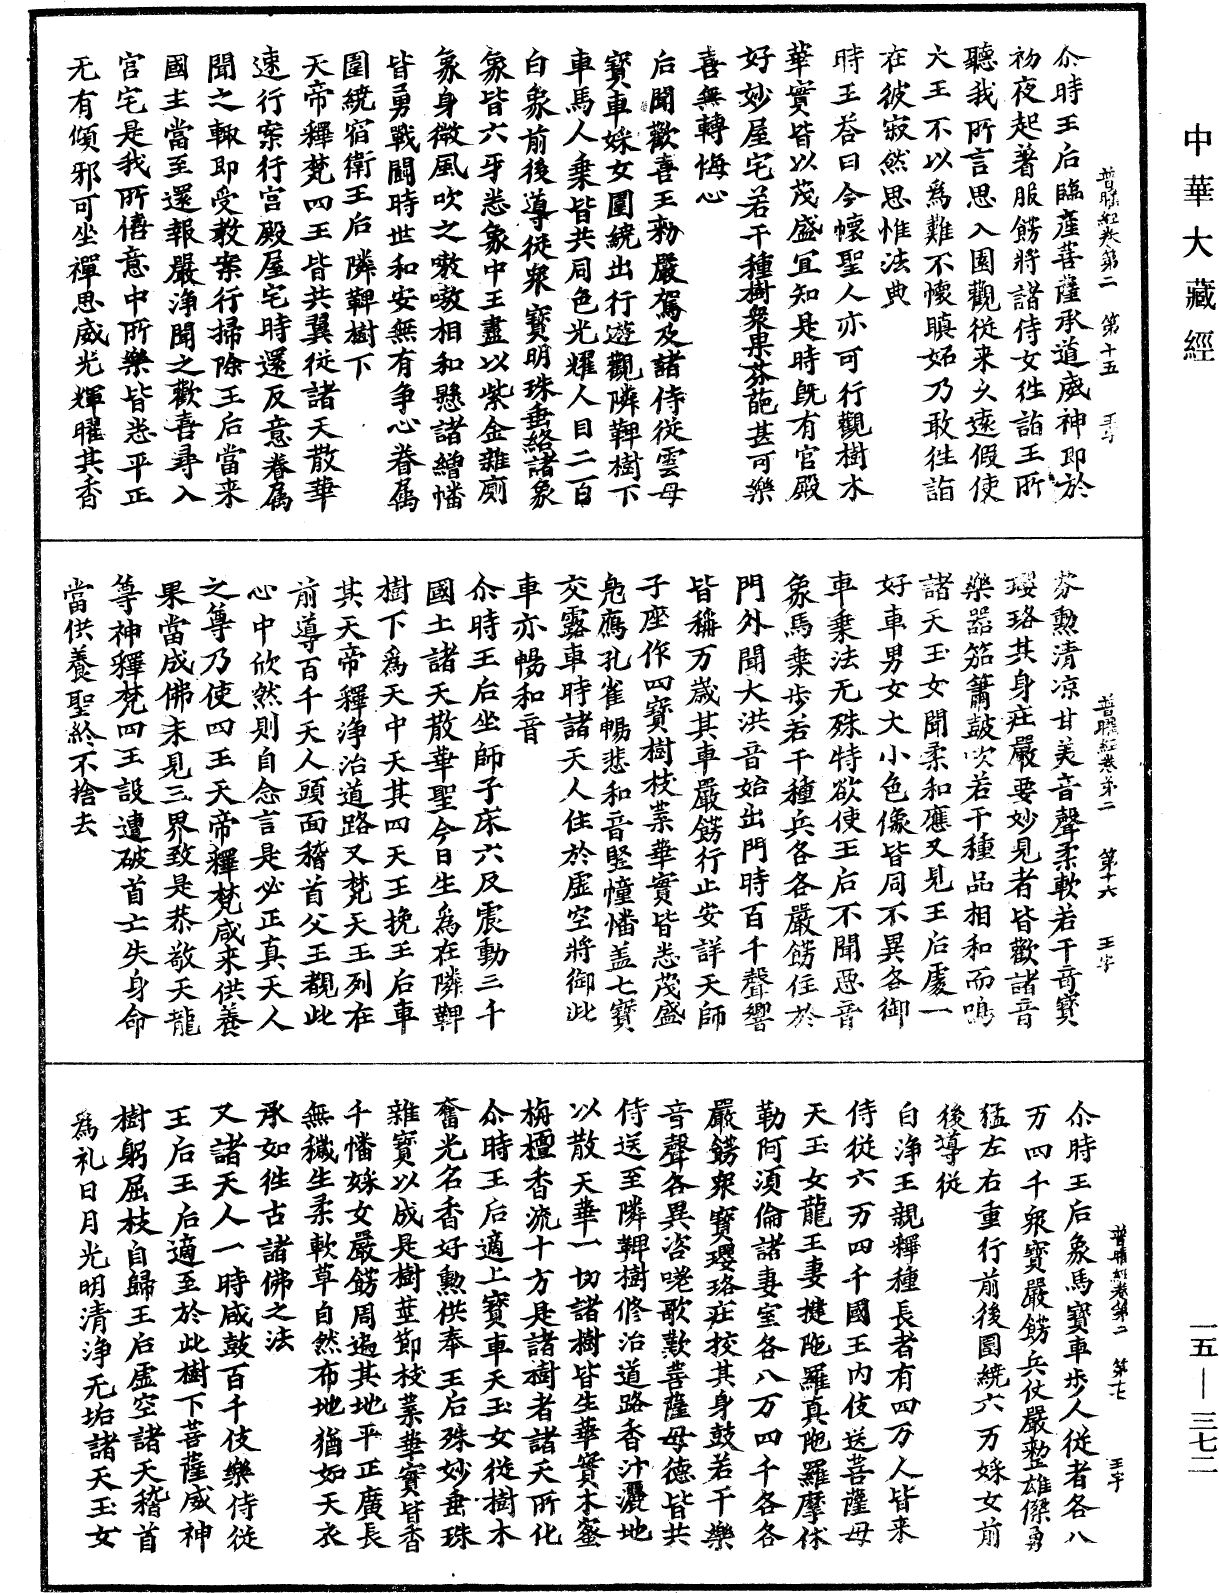 中華大藏經
尒時王后臨產菩薩承道威神即於
初夜起著服餝將諸侍女徃詣王所
聽我所言思入園觀従来久遠假使
大王不以為難不懷瞋妬乃敢徃詣
在彼寂然思惟法典
時王荅曰今懷聖人亦可行觀樹木
華實皆以茂盛宜知是時既有宮殿
好妙屋宅若干種樹衆果芬葩甚可樂
喜無轉悔心
后聞歡喜王勑嚴駕及諸侍従雲母
寶車婇女圍繞出行遊觀隣鞞樹下
車馬人乗皆共同色光耀人目二百
白象前後導従衆寶明珠垂絡諸象
象皆六牙悉象中王盡以紫金雜廁
象身微風吹之嗷嗷相和懸諸繒幡
皆勇戰鬪時世和安無有爭心眷属
圍繞宿衛王后隣鞞樹下
天帝釋梵四王皆共翼従諸天散華
速行案行宮殿屋宅時還反意眷属
聞之輙即受教案行掃除王后當来
國主當至還報嚴淨聞之歡喜尋入
宮宅是我所僖意中所樂皆悉平正
无有傾邪可坐禪思威光輝曜其香
普曜經卷第二　第十五　王字
芬勲清凉甘美音聲柔軟若干音寶
瓔珞其身莊嚴要妙見者皆歡諸音
樂器笳簫鼓吹若干種品相和而鳴
諸天玉女聞柔和應又見王后處一
好車男女大小色像皆同不異各御
車乗法无殊特欲使王后不聞惡音
象馬乗步若干種兵各各嚴餝住於
門外聞大洪音始出門時百千聲響
皆稱万歳其車嚴餝行止安詳天師
子座作四寶樹枝葉華實皆悉茂盛
凫鴈孔雀暢悲和音竪幢幡盖七寶
交露車時諸天人住於虚空將御此
車亦暢和音
尒時王后坐師子床六反震動三千
國土諸天散華聖今日生為在隣鞞
樹下為天中天其四天王挽王后車
其天帝釋淨治道路又梵天王列在
前導百千天人頭面稽首父王覩此
心中欣然則自念言是必正真天人
之尊乃使四王天帝釋梵咸来供養
果當成佛未見三界致是恭敬天龍
等神釋梵四王設遭破首亡失身命
當供養聖終不捨去
普曜經卷第二　第十六　王字
尒時王后象馬寶車步人従者各八
万四千衆寶嚴餝兵仗嚴整雄傑勇
猛左右重行前後圍繞六万婇女前
後導従
白淨王親釋種長者有四万人皆来
侍従六万四千國王内伎送菩薩母
天玉女龍王妻揵陁羅真陁羅摩休
勒阿須倫諸妻室各八万四千各各
嚴餝衆寶瓔珞莊挍其身鼓若干樂
音聲各異咨嗟歌歎菩薩母德皆共
侍送至隣鞞樹修治道路香汁灑地
以散天華一切諸樹皆生華實木蜜
栴檀香流十方是諸樹者諸天所化
尒時王后適上寶車天玉女従樹木
奮光名香好勲供奉王后殊妙垂珠
雜寶以成是樹莖節枝葉華實皆香
千幡婇女嚴餝周遍其地平正廣長
無穢生柔軟草自然布地猶如天衣
承如徃古諸佛之法
又諸天人一時咸鼓百千伎樂侍従
王后王后適至於此樹下菩薩威神
樹躬屈枝自歸王后虚空諸天稽首
為礼日月光明清淨无垢諸天玉女
普曜經卷第二　第十七　王字
一五—三七二